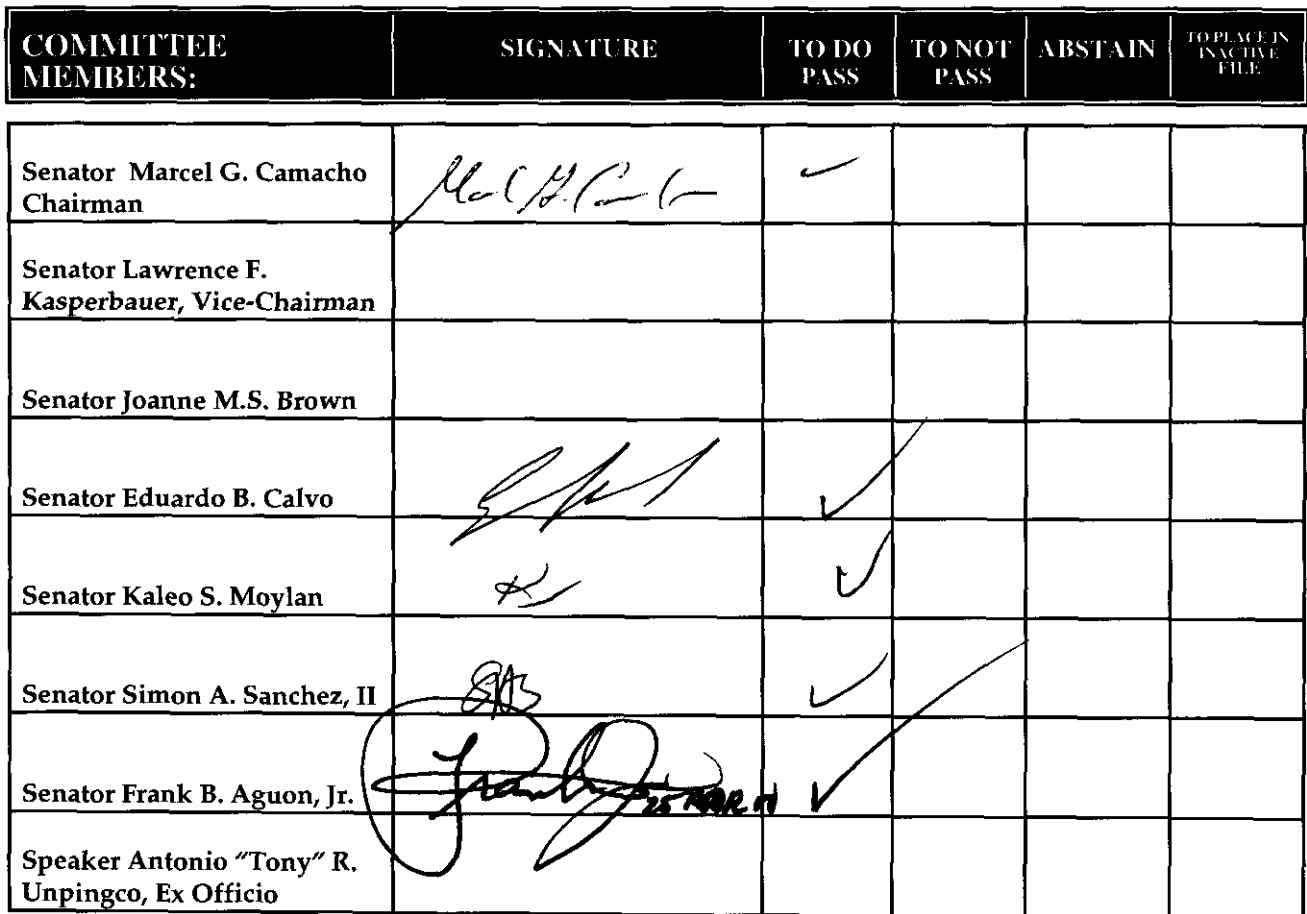 COMMITTEE MEMBERS:
SIGNATURE
TO DO PASS
TO NOT PASS
ABSTAIN
TO PLACE IN INACTIVE FILE
Senator Marcel G. Camacho
Chairman
Senator Lawrence F.
Kasperbauer, Vice-Chairman
Senator Joanne M.S. Brown
Senator Eduardo B. Calvo
Senator Kaleo S. Moylan
Senator Simon A. Sanchez, II
Senator Frank B. Aguon, Jr.
Speaker Antonio "Tony" R.
Unpingco, Ex Officio